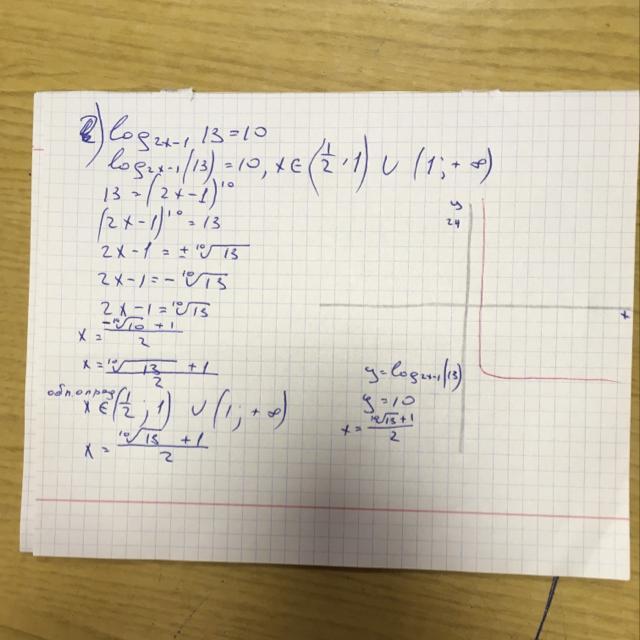 2) log₂ₓ₋₁ 13 = 10
log₂ₓ₋₁(13) = 10, x ∈ (1/2, 1) ∪ (1; +∞)
13 = (2x-1)¹⁰
(2x-1)¹⁰ = 13
2x-1 = ± ¹⁰√13
2x-1 = - ¹⁰√13
2x-1 = ¹⁰√13
x = (-¹⁰√10 + 1)/2
x = (¹⁰√13 + 1)/2
обл. опред
x ∈ (1/2; 1) ∪ (1; +∞)
x = (¹⁰√13 + 1)/2
y
24
x
y = log₂ₓ₋₁(13)
y = 10
x = (¹⁰√13 + 1)/2